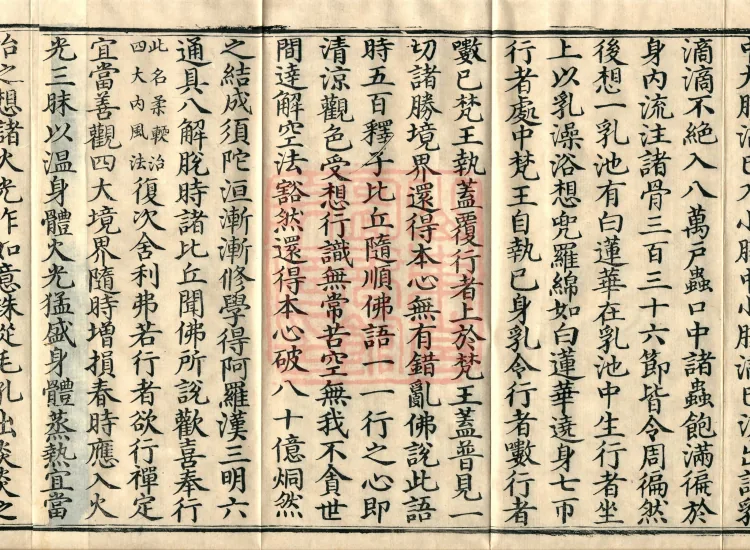 滴滴不絕入八萬戶蟲口中諸蟲飽滿徧於
身內流注諸骨三百三十六節皆令周徧然
後想一乳池有白蓮華在乳池中生行者坐
上以乳澡浴想兜羅綿如白蓮華遶身七帀
行者處中梵王自執已身乳令行者嗽行者
嗽已梵王執蓋覆行者上於梵王蓋普見一
切諸勝境界還得本心無有錯亂佛說此語
時五百釋子比丘隨順佛語一一行之心即
清涼觀色受想行識無常苦空無我不貪世
間達解空法豁然還得本心破八十億烔然
之結成須陀洹漸漸修學得阿羅漢三明六
通具八解脫時諸比丘聞佛所說歡喜奉行
此名柔輭治
四大內風法
復次舍利弗若行者欲行禪定
宜當善觀四大境界隨時增損春時應入火
光三昧以溫身體火光猛盛身體蒸熱宜當
治之想諸火光作如意珠從毛孔出